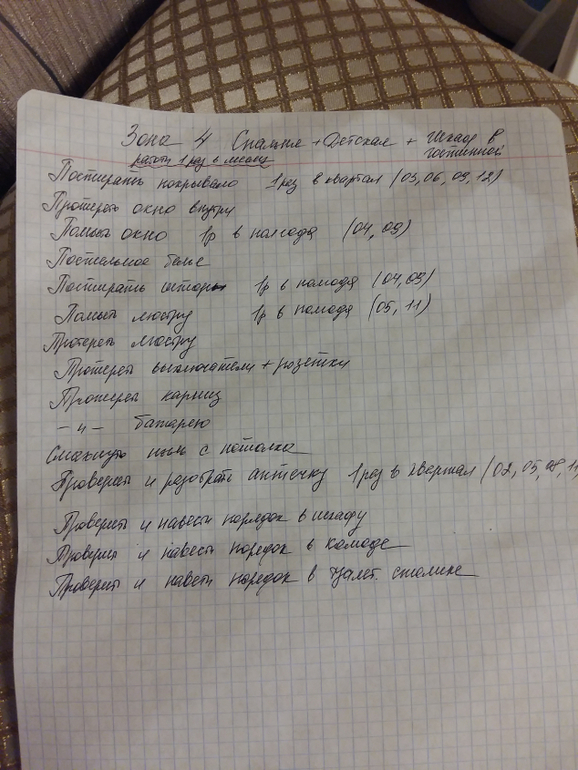 Зона 4 Спальня + Детская + Шкаф в гостинной
работы 1 раз в месяц
Постирать покрывало 1 раз в квартал (03, 06, 09, 12)
Протереть окно внутри
Помыть окно 1р в полгода (04, 09)
Постельное белье
Постирать шторы 1р в полгода (04, 09)
Помыть люстру 1р в полгода (05, 11)
Протереть люстру
Протереть выключатели + розетки
Протереть карниз
-"- батарею
Смахнуть пыль с потолка
Проверить и разобрать аптечку 1 раз в квартал (02, 05, 08, 11,
Проверить и навести порядок в шкафу
Проверить и навести порядок в комоде
Проверить и навести порядок в туалет. столике